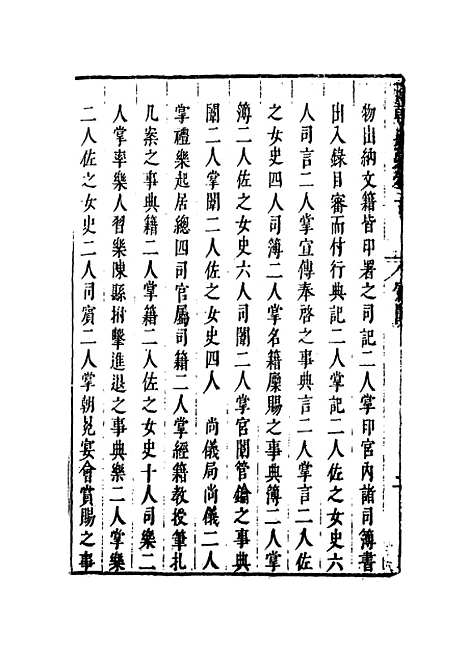 物出納文籍皆印署之司記二人掌印宮內諸司簿書
出入錄目審而付行典記二人掌記二人佐之女史六
人司言二人掌宣傳奉啓之事典言二人掌言二人佐
之女史四人司簿二人掌名籍廩賜之事典簿二人掌
簿二人佐之女史六人司闈二人掌宮闈管鑰之事典
闈二人掌闈二人佐之女史四人　尚儀局尚儀二人
掌禮樂起居總四司官屬司籍二人掌經籍教授筆札
几案之事典籍二人掌籍二人佐之女史十人司樂二
人掌率樂人習樂陳縣拊擊進退之事典樂二人掌樂
二人佐之女史二人司賓二人掌朝見宴會賞賜之事